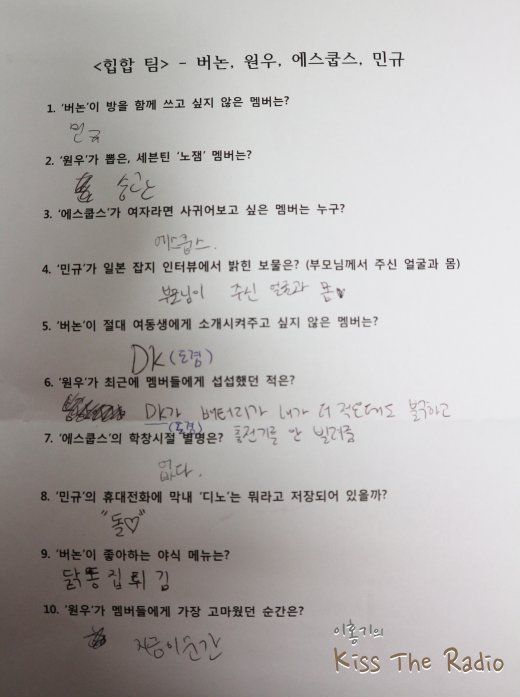 <힙합 팀> - 버논, 원우, 에스쿱스, 민규
1. '버논'이 방을 함께 쓰고 싶지 않은 멤버는?
민규
2. '원우'가 뽑은, 세븐틴 '노잼' 멤버는?
승관
3. '에스쿱스'가 여자라면 사귀어보고 싶은 멤버는 누구?
에스쿱스.
4. '민규'가 일본 잡지 인터뷰에서 밝힌 보물은? (부모님께서 주신 얼굴과 몸)
부모님이 주신 얼굴과 몸♥
5. '버논'이 절대 여동생에게 소개시켜주고 싶지 않은 멤버는?
DK(도겸)
6. '원우'가 최근에 멤버들에게 섭섭했던 적은?
DK가 배터리가 내가 더 적은데도 불구하고
(도겸) 충전기를 안 빌려줌
7. '에스쿱스'의 학창시절 별명은?
없다.
8. '민규'의 휴대전화에 막내 '디노'는 뭐라고 저장되어 있을까?
"돌♡"
9. '버논'이 좋아하는 야식 메뉴는?
닭똥집튀김
10. '원우'가 멤버들에게 가장 고마웠던 순간은?
지금이순간
이홍기의
Kiss The Radio